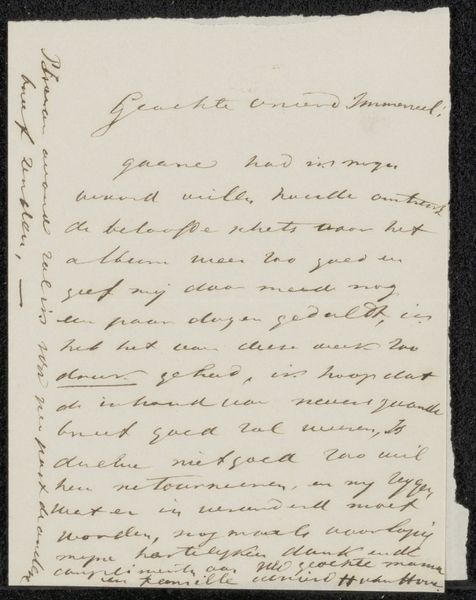 Geachte vriend Immerzeel!
gaarne had ik mijn
woord willen houden omtrent
de beloofde schets voor het
album wees zoo goed en
geef mij daar meede nog
een paar dagen gedult, ik
heb het van deese week zoo
druk gehad, ik hoop dat
de inhoud van nevensgaande
brief goed zal weesen, is
deselve niet goed zoo wil
hem retourneeren, en mij zeggen
wat er in veranderd moet
worden, nogmaals voorlopig
mijne hartelijken dank en de
complimenten aan UE geachte mama
en familie vriend H van Hove
van avond zal ik
brief zenden,